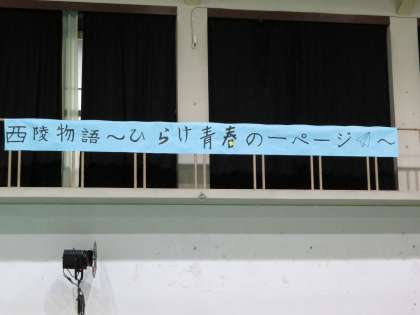 西陵物語～ひらけ青春の一ページ～